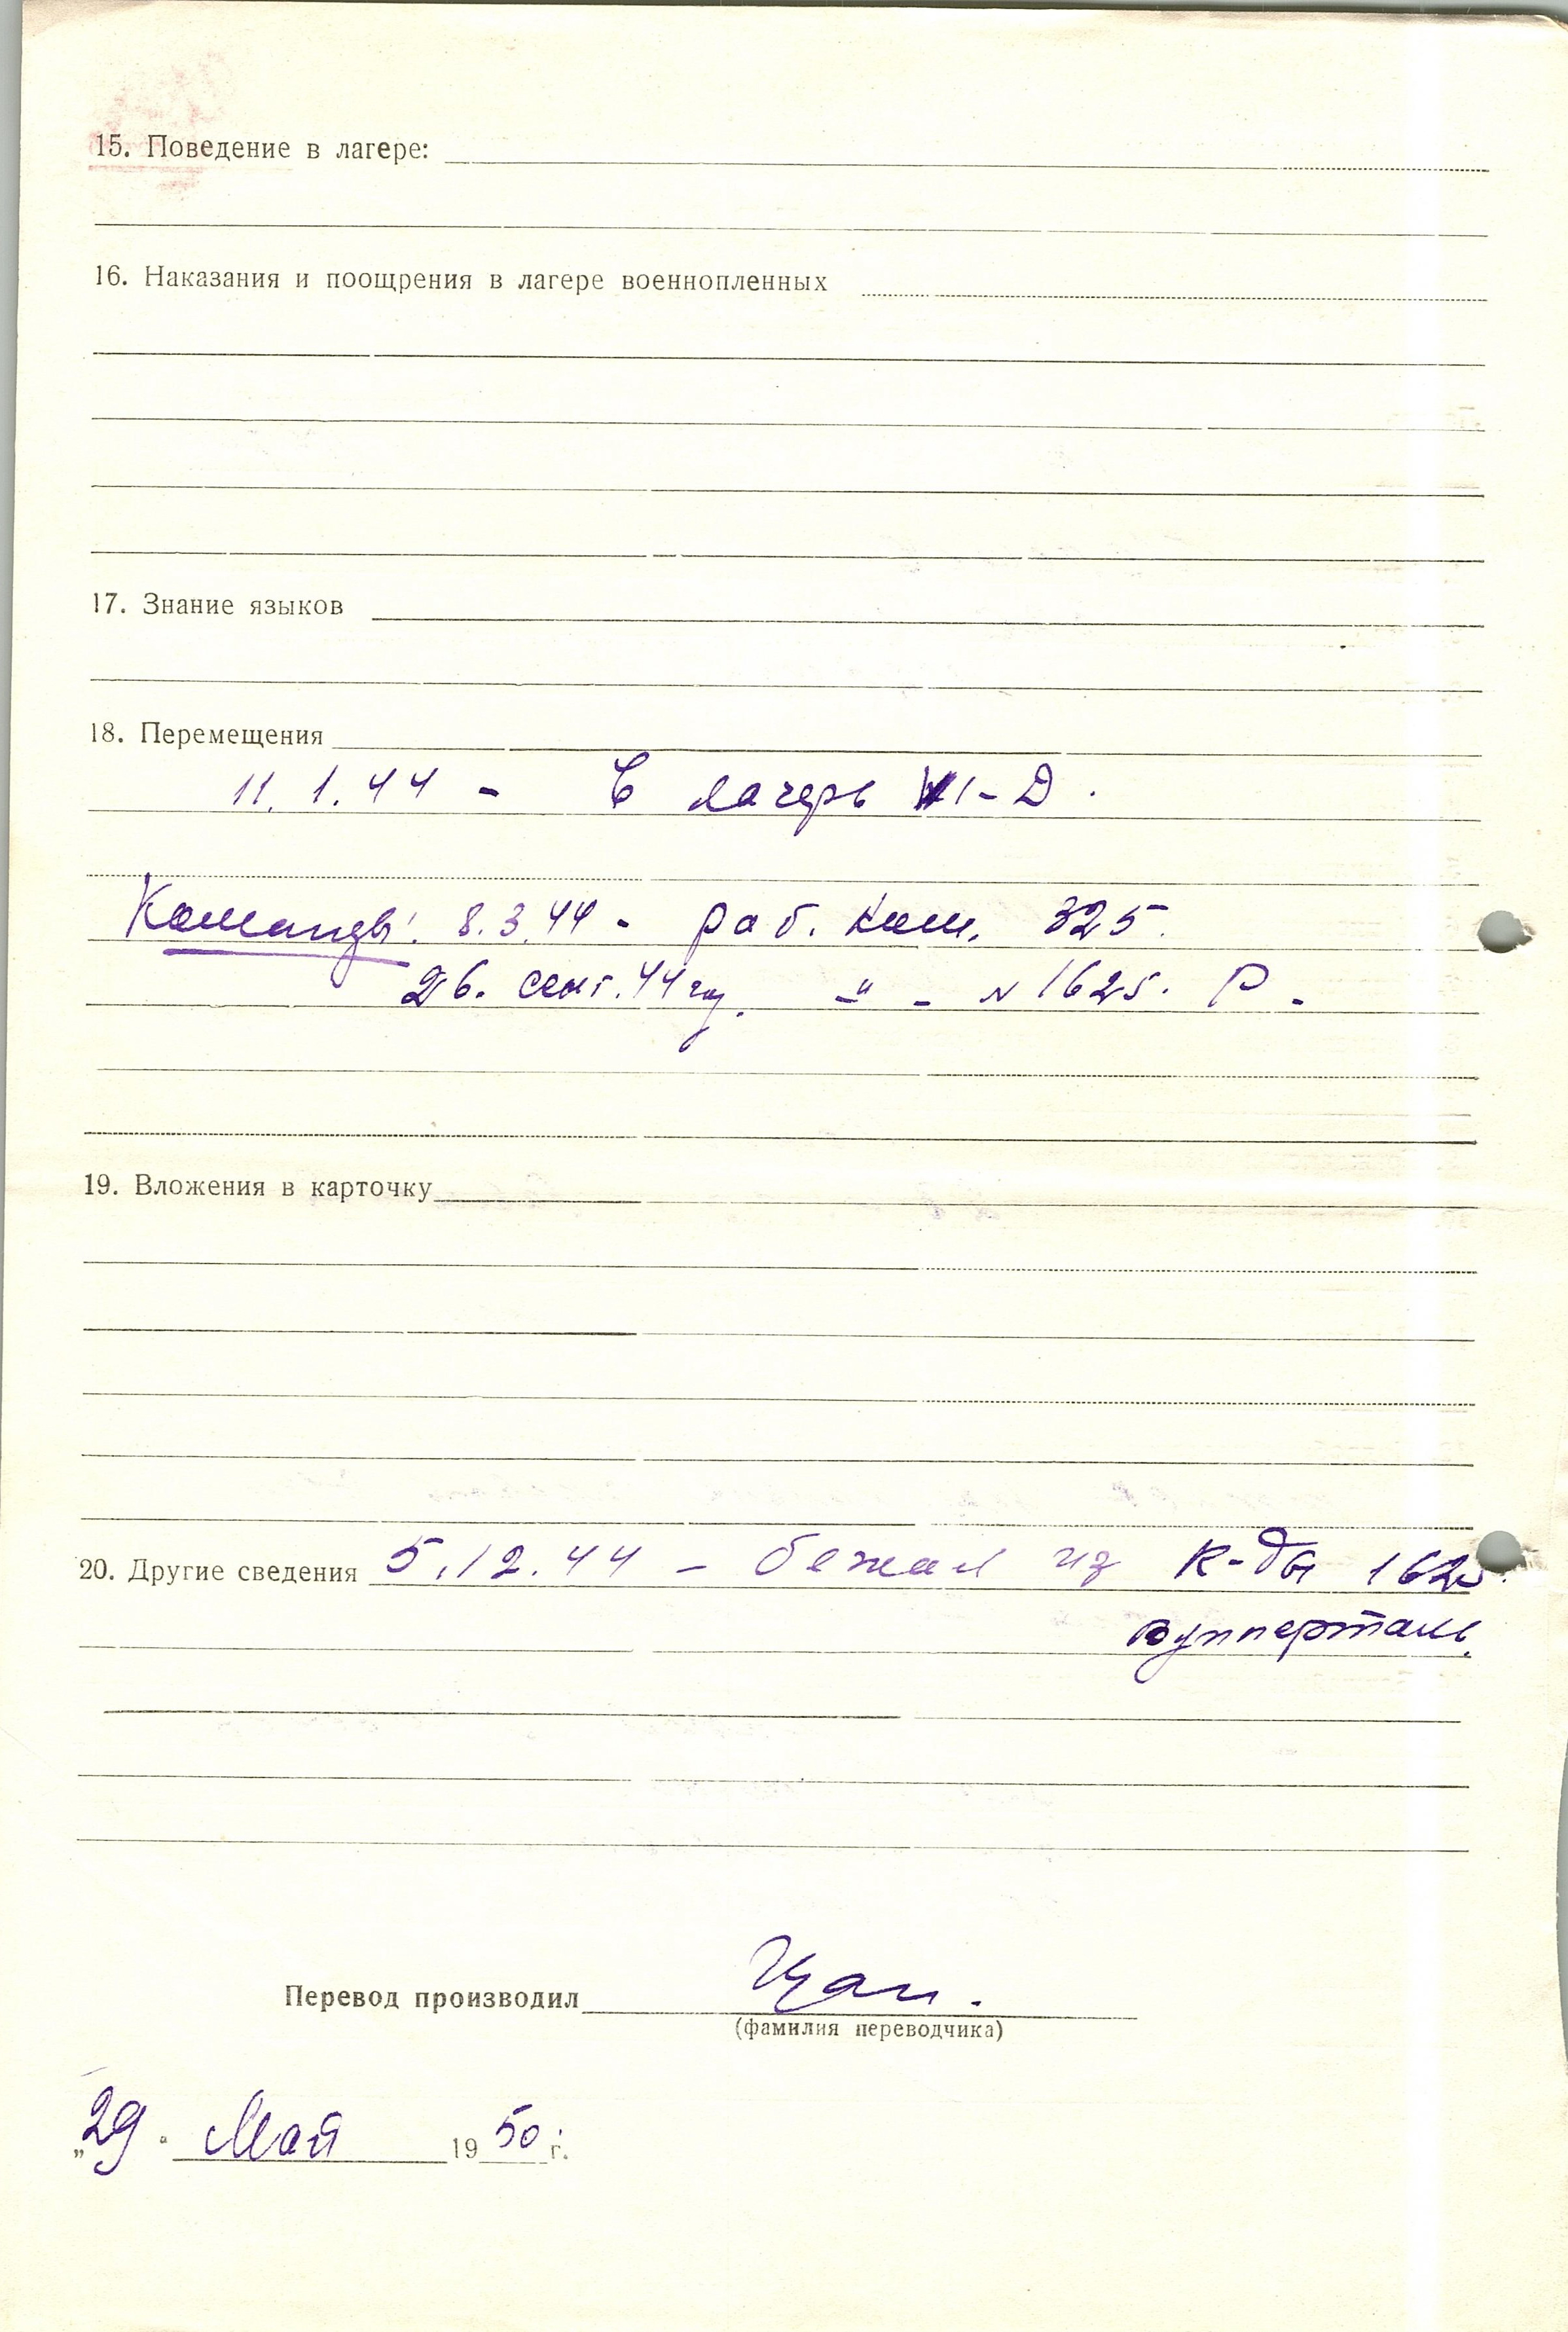 15. Поведение в лагере:
16. Наказания и поощрения в лагере военнопленных
17. Знание языков
18. Перемещения
11. 1. 44 - в лагерь VI-D.
Команды: 8.3.44 - раб. ком. 325.
26. сент. 44 год. -"- N 1625. Р.
19. Вложения в карточку
20. Другие сведения 5.12.44 - бежал из к-ды 1625.
Вупперталь.
Перевод производил
(фамилия переводчика)
„29" Май 1950 г.